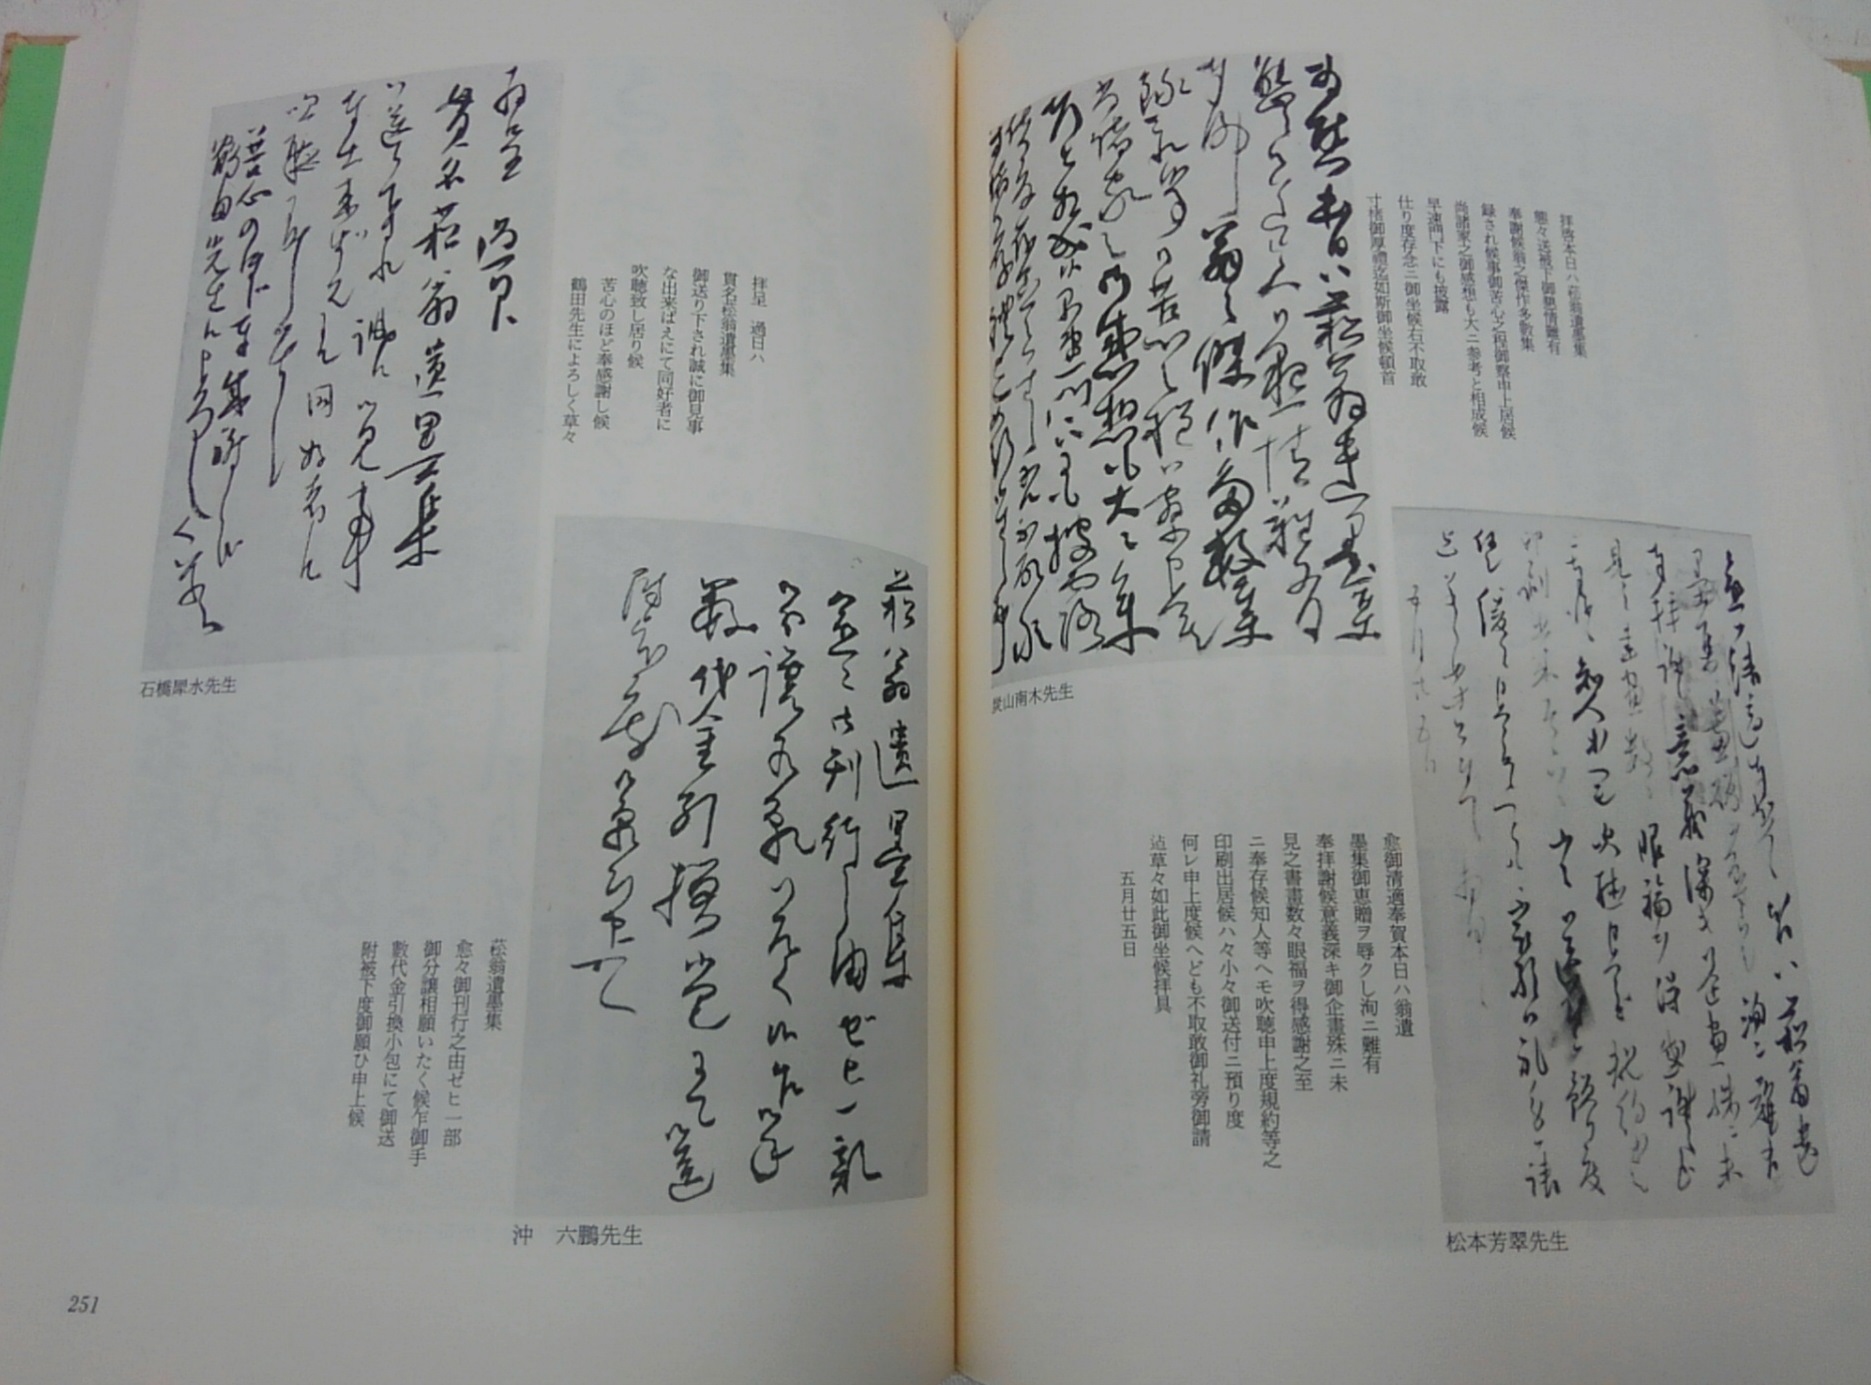 拝啓本日ハ菘翁遺墨集
態々送被下御懇情難有
奉謝候翁之傑作多数集
録され候事御苦心之程御察申上居候
尚諸家之御感想も大ニ参考と相成候
早速門下にも披露
仕り度存念ニ御坐候右不取敢
寸楮御厚禮迄如斯御坐候頓首
炭山南木先生
愈御清適奉賀本日ハ翁遺
墨集御恵贈ヲ辱クし洵ニ難有
奉拝謝候意義深キ御企畫殊ニ未
見之書畫数々眼福ヲ得感謝之至
ニ奉存候知人等へモ吹聴申上度規約等之
印刷出居候ハ々小々御送付ニ預り度
何レ申上度候へども不取敢御礼旁御請
迠草々如此御坐候拝具
五月廿五日
松本芳翠先生
拝呈 過日ハ
貫名菘翁遺墨集
御送り下され誠に御見事
な出来ばえにて同好者に
吹聴致し居り候
苦心のほど奉感謝し候
鶴田先生によろしく草々
石橋犀水先生
菘翁遺墨集
愈々御刊行之由ゼヒ一部
御分譲相願いたく候乍御手
數代金引換小包にて御送
附被下度御願ひ申上候
沖 六鵬先生
251